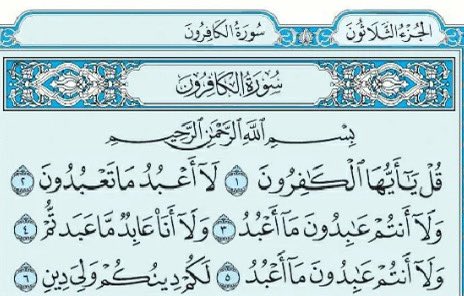 الجُزْءُ الثَّلَاثُونَ سُورَةُ الكَافِرُونَ
سُورَةُ الكَافِرُونَ
بِسْمِ اللَّهِ الرَّحْمَٰنِ الرَّحِيمِ
قُلْ يَٰٓأَيُّهَا ٱلْكَٰفِرُونَ ١ لَآ أَعْبُدُ مَا تَعْبُدُونَ ٢
وَلَآ أَنتُمْ عَٰبِدُونَ مَآ أَعْبُدُ ٣ وَلَآ أَنَا۠ عَابِدٌ مَّا عَبَدتُّمْ ٤
وَلَآ أَنتُمْ عَٰبِدُونَ مَآ أَعْبُدُ ٥ لَكُمْ دِينُكُمْ وَلِىَ دِينِ ٦